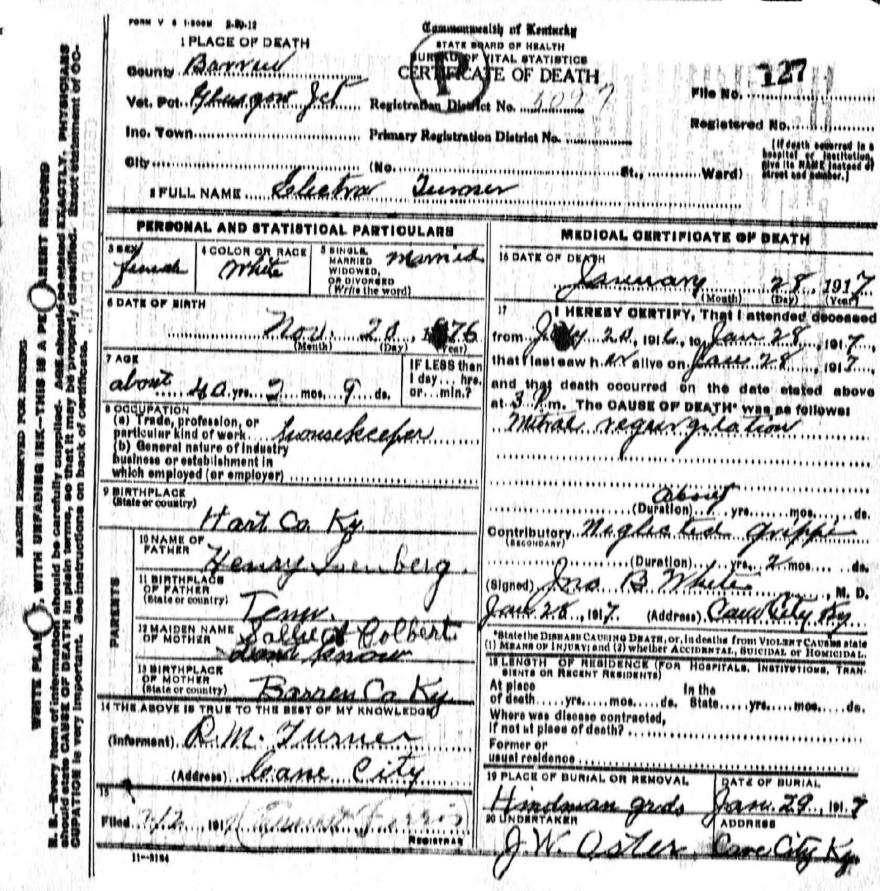 FORM V S 1-500M 2-20-12
Commonwealth of Kentucky
STATE BOARD OF HEALTH
BUREAU OF VITAL STATISTICS
CERTIFICATE OF DEATH
1 PLACE OF DEATH
County Barren
Vot. Pct. Glasgow Jct
Inc. Town
City
Registration District No. 5097
Primary Registration District No.
(No. St., Ward)
File No. 127
Registered No.
[If death occurred in a
hospital or institution,
give its NAME instead of
street and number.]
2 FULL NAME Electra Turner
PERSONAL AND STATISTICAL PARTICULARS
3 SEX female
4 COLOR OR RACE White
5 SINGLE, MARRIED WIDOWED, OR DIVORCED (Write the word) Married
6 DATE OF BIRTH
Nov. 20, 1876
(Month) (Day) (Year)
7 AGE
about 40 yrs. 2 mos. 9 ds.
IF LESS than
1 day... hrs.
or... min.?
8 OCCUPATION
(a) Trade, profession, or
particular kind of work housekeeper
(b) General nature of industry
business or establishment in
which employed (or employer)
9 BIRTHPLACE
(State or country)
Hart Co Ky
PARENTS
10 NAME OF FATHER
Henry Isenberg
11 BIRTHPLACE OF FATHER
(State or country)
Tenn.
12 MAIDEN NAME OF MOTHER
Colbert
dont know
13 BIRTHPLACE OF MOTHER
(State or country)
Barren Co Ky
14 THE ABOVE IS TRUE TO THE BEST OF MY KNOWLEDGE
(Informant) R.M. Turner
(Address) Cave City
15
Filed 2/2 191
REGISTRAR
11-3184
MEDICAL CERTIFICATE OF DEATH
16 DATE OF DEATH
January 28 1917
(Month) (Day) (Year)
17 I HEREBY CERTIFY, That I attended deceased
from 20, 1916, to Jan 28, 1917,
that I last saw her alive on Jan 28, 1917
and that death occurred on the date stated above
at 3 P.m. The CAUSE OF DEATH* was as follows:
Mitral regurgitation
about
(Duration) yrs. mos. ds.
Contributory Neglected grippe
(SECONDARY)
(Duration) yrs. 2 mos. ds.
(Signed) Jno B White, M. D.
Jan 28, 1917. (Address) Cave City Ky
*State the DISEASE CAUSING DEATH, or, in deaths from VIOLENT CAUSES state
(1) MEANS OF INJURY; and (2) whether ACCIDENTAL, SUICIDAL or HOMICIDAL.
18 LENGTH OF RESIDENCE (FOR HOSPITALS, INSTITUTIONS, TRAN-
SIENTS OR RECENT RESIDENTS)
At place of death yrs. mos. ds. In the State yrs. mos. ds.
Where was disease contracted,
if not at place of death?
Former or
usual residence
19 PLACE OF BURIAL OR REMOVAL
Hindman grds
DATE OF BURIAL
Jan. 29, 1917
20 UNDERTAKER
J.W. Oster
ADDRESS
Cave City Ky.
MARGIN RESERVED FOR BINDING
WRITE PLAINLY, WITH UNFADING INK—THIS IS A PERMANENT RECORD
N. B.—Every item of information should be carefully supplied. AGE should be stated EXACTLY. PHYSICIANS
should state CAUSE OF DEATH in plain terms, so that it may be properly classified. Exact statement of OC-
CUPATION is very important. See instructions on back of certificate.